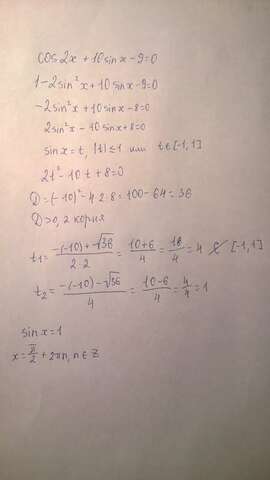 cos2x + 10sinx - 9 = 0
1 - 2sin²x + 10sinx - 9 = 0
-2sin²x + 10sinx - 8 = 0
2sin²x - 10sinx + 8 = 0
sinx = t, |t| ≤ 1 или t ∈ [-1,1]
2t² - 10t + 8 = 0
D = (-10)² - 4·2·8 = 100 - 64 = 36
D > 0, 2 корня
t₁ = (-(-10) + √36)/(2·2) = (10+6)/4 = 16/4 = 4 ∉ [-1,1]
t₂ = (-(-10) - √36)/4 = (10-6)/4 = 4/4 = 1
sinx = 1
x = π/2 + 2πn, n ∈ Z